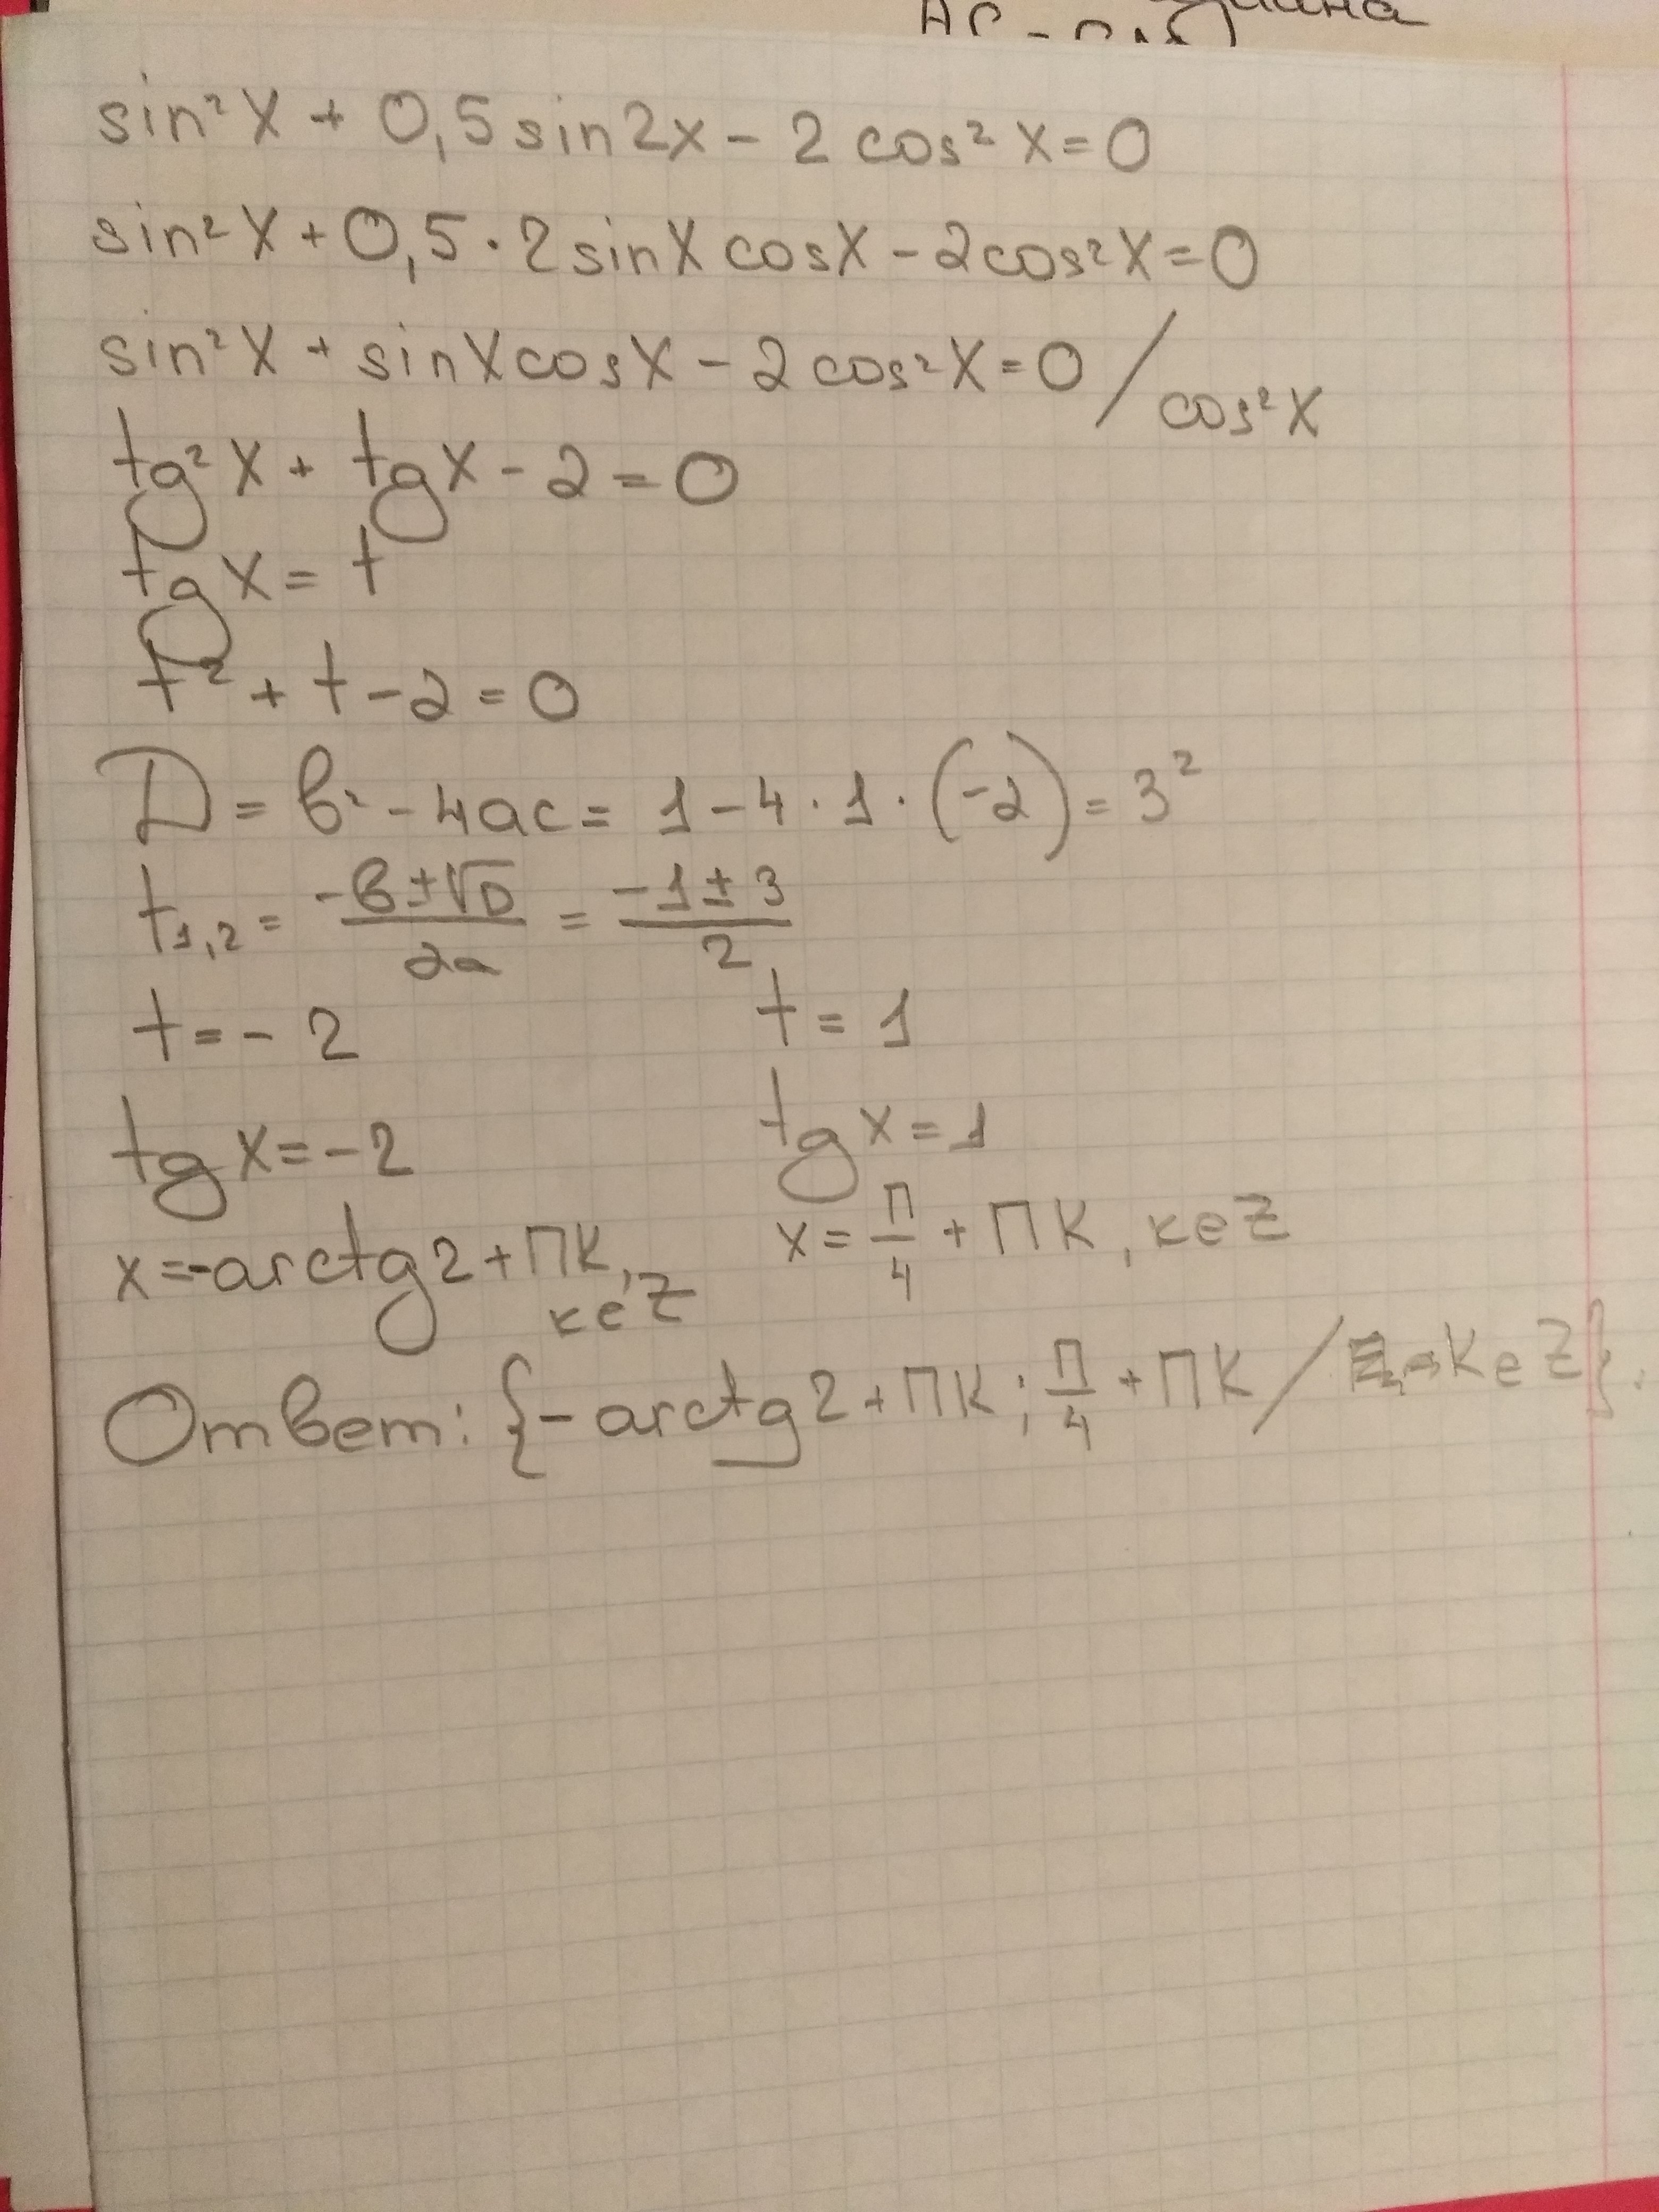 sin²x + 0,5 sin2x - 2 cos²x = 0
sin²x + 0,5 · 2 sinx cosx - 2cos²x = 0
sin²x + sinx cosx - 2 cos²x = 0 / cos²x
tg²x + tgx - 2 = 0
tgx = t
t² + t - 2 = 0
D = b² - 4ac = 1 - 4 · 1 · (-2) = 3²
t₁,₂ = (-b ± √D)/2a = (-1 ± 3)/2
t = -2 t = 1
tgx = -2 tgx = 1
x = -arctg2 + πk, k∈Z x = π/4 + πk, k∈Z
Ответ: {-arctg2 + πk; π/4 + πk / k∈Z}.